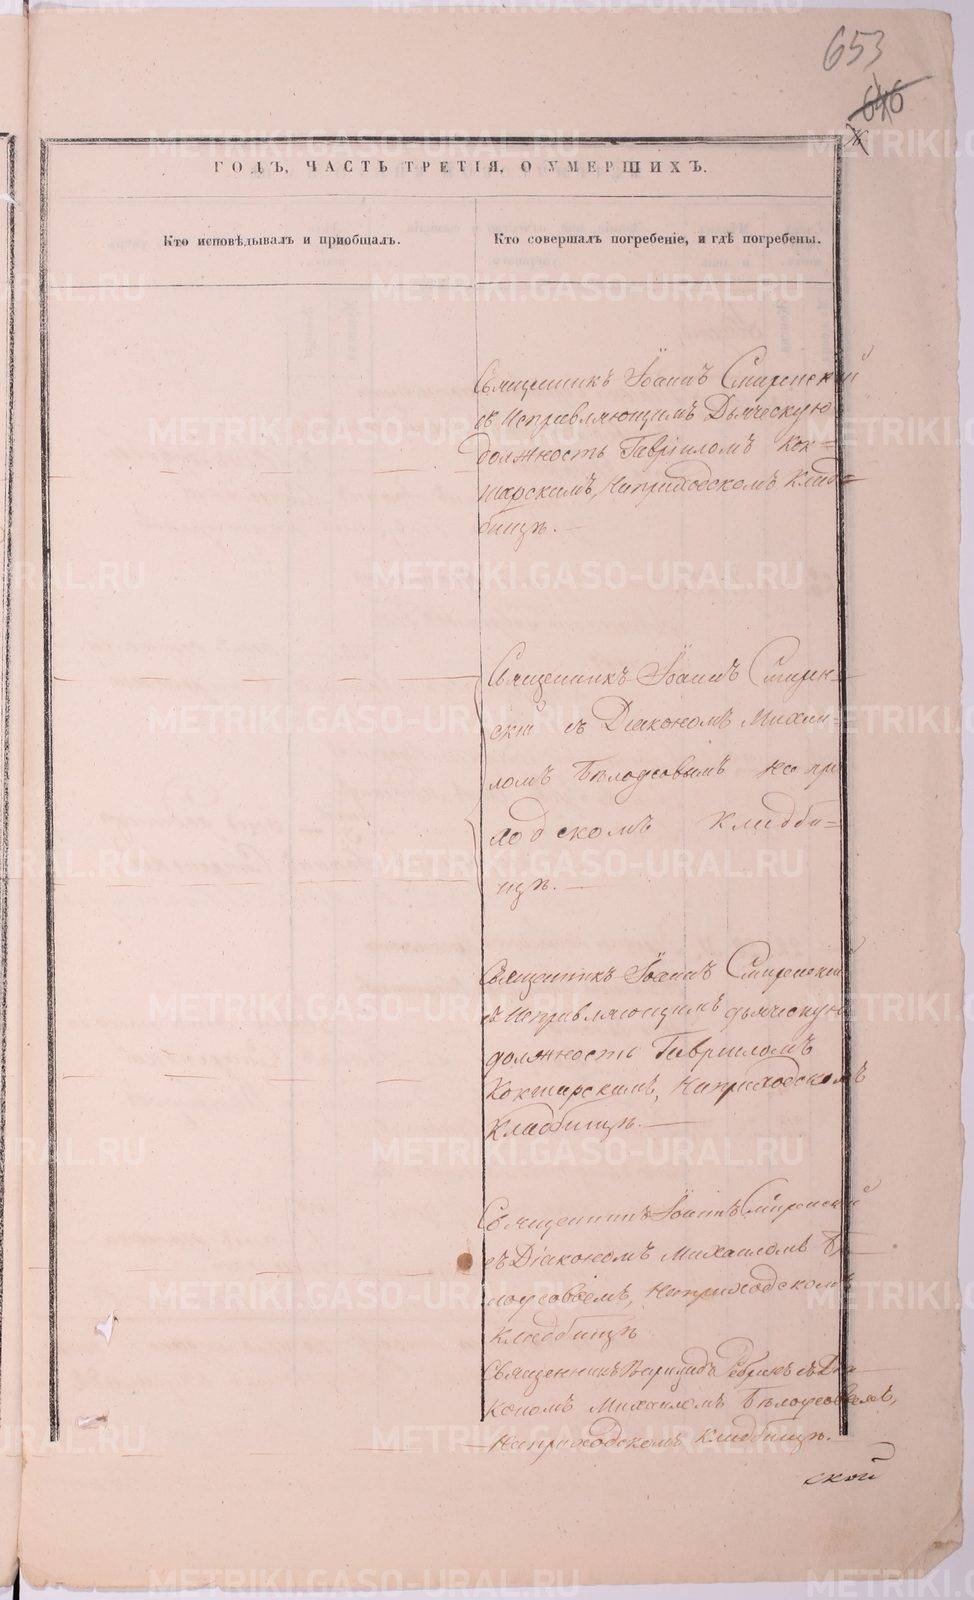 653
646
ГОДЪ, ЧАСТЬ ТРЕТІЯ, О УМЕРШИХЪ.
Кто исповѣдывалъ и приобщалъ.
Кто совершалъ погребеніе, и гдѣ погребены.
Священникъ Іоаннъ Смиренскій
съ Исправляющимъ Дьяческую
должность Гавріиломъ Кок-
шарскимъ, На приходскомъ Кладъ-
бищѣ.
Священникъ Іоаннъ Смирен-
скій съ Діакономъ Михаи-
ломъ Бѣлоусовымъ на при
ходскомъ кладби-
щѣ.
Священникъ Іоаннъ Смиренскій
съ Исправляющимъ дьяческую
должность Гавриломъ
Кокшарскимъ, На приходскомъ
Кладбищѣ.
Священникъ Іоаннъ Смиренскій
съ Діакономъ Михаиломъ Бѣ
лоусовымъ, На приходскомъ
Кладбищѣ
Священникъ съ Діа
кономъ Михаиломъ Бѣлоусовымъ,
На приходскомъ Кладбищѣ.
ской
METRIKI.GASO-URAL.RU